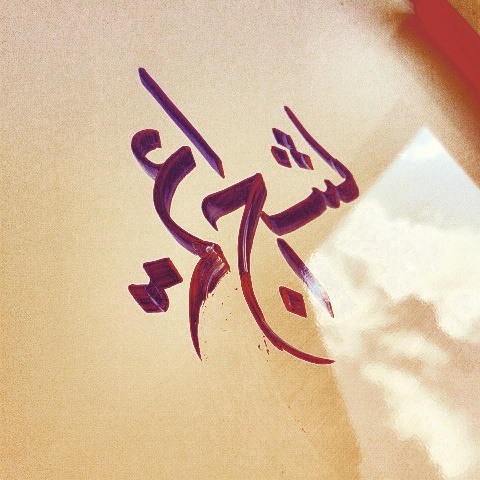 الشجاعي